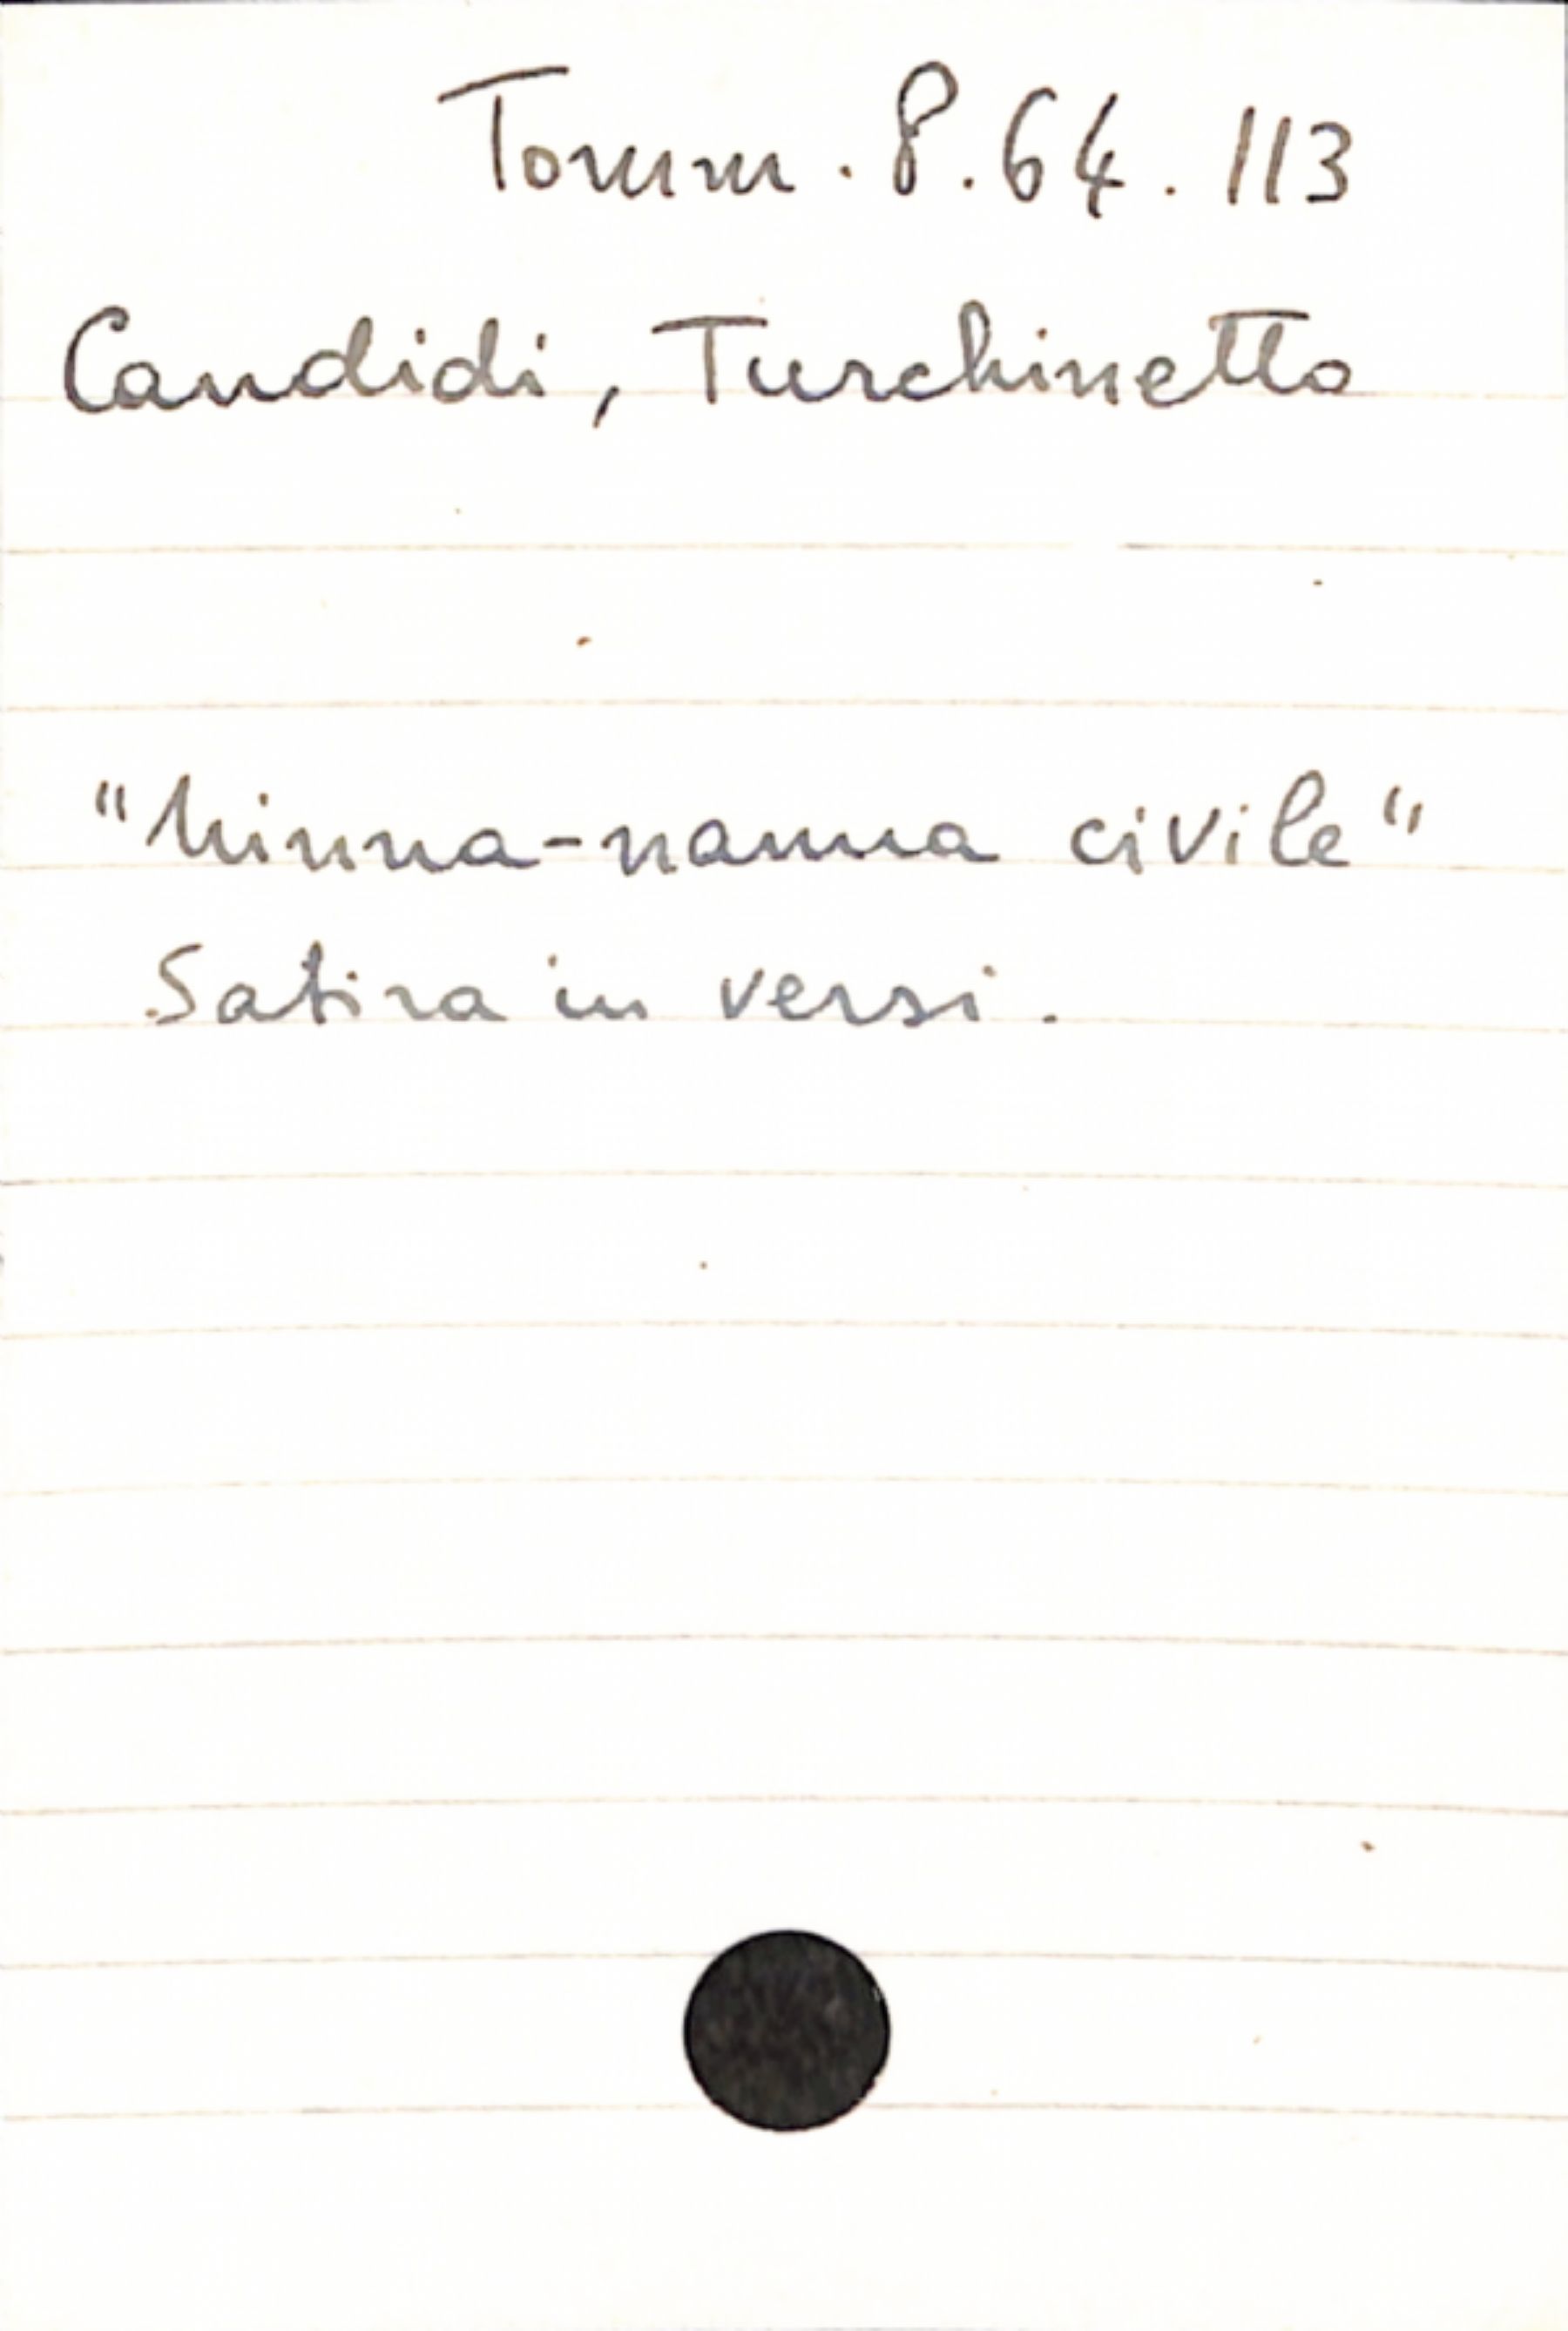 Tomm. 8. 64. 113
Candidi, Turchinetto
"Ninna-nanna civile"
Satira in versi.